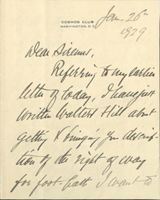 COSMOS CLUB
WASHINGTON, D.C.
Jan. 26th
1929
Dear Sirems,
Referring to my earlier
letter of today, I have just
written Walters Hill about
getting & bringing you descrip-
tion of the right of way
for foot path I want to